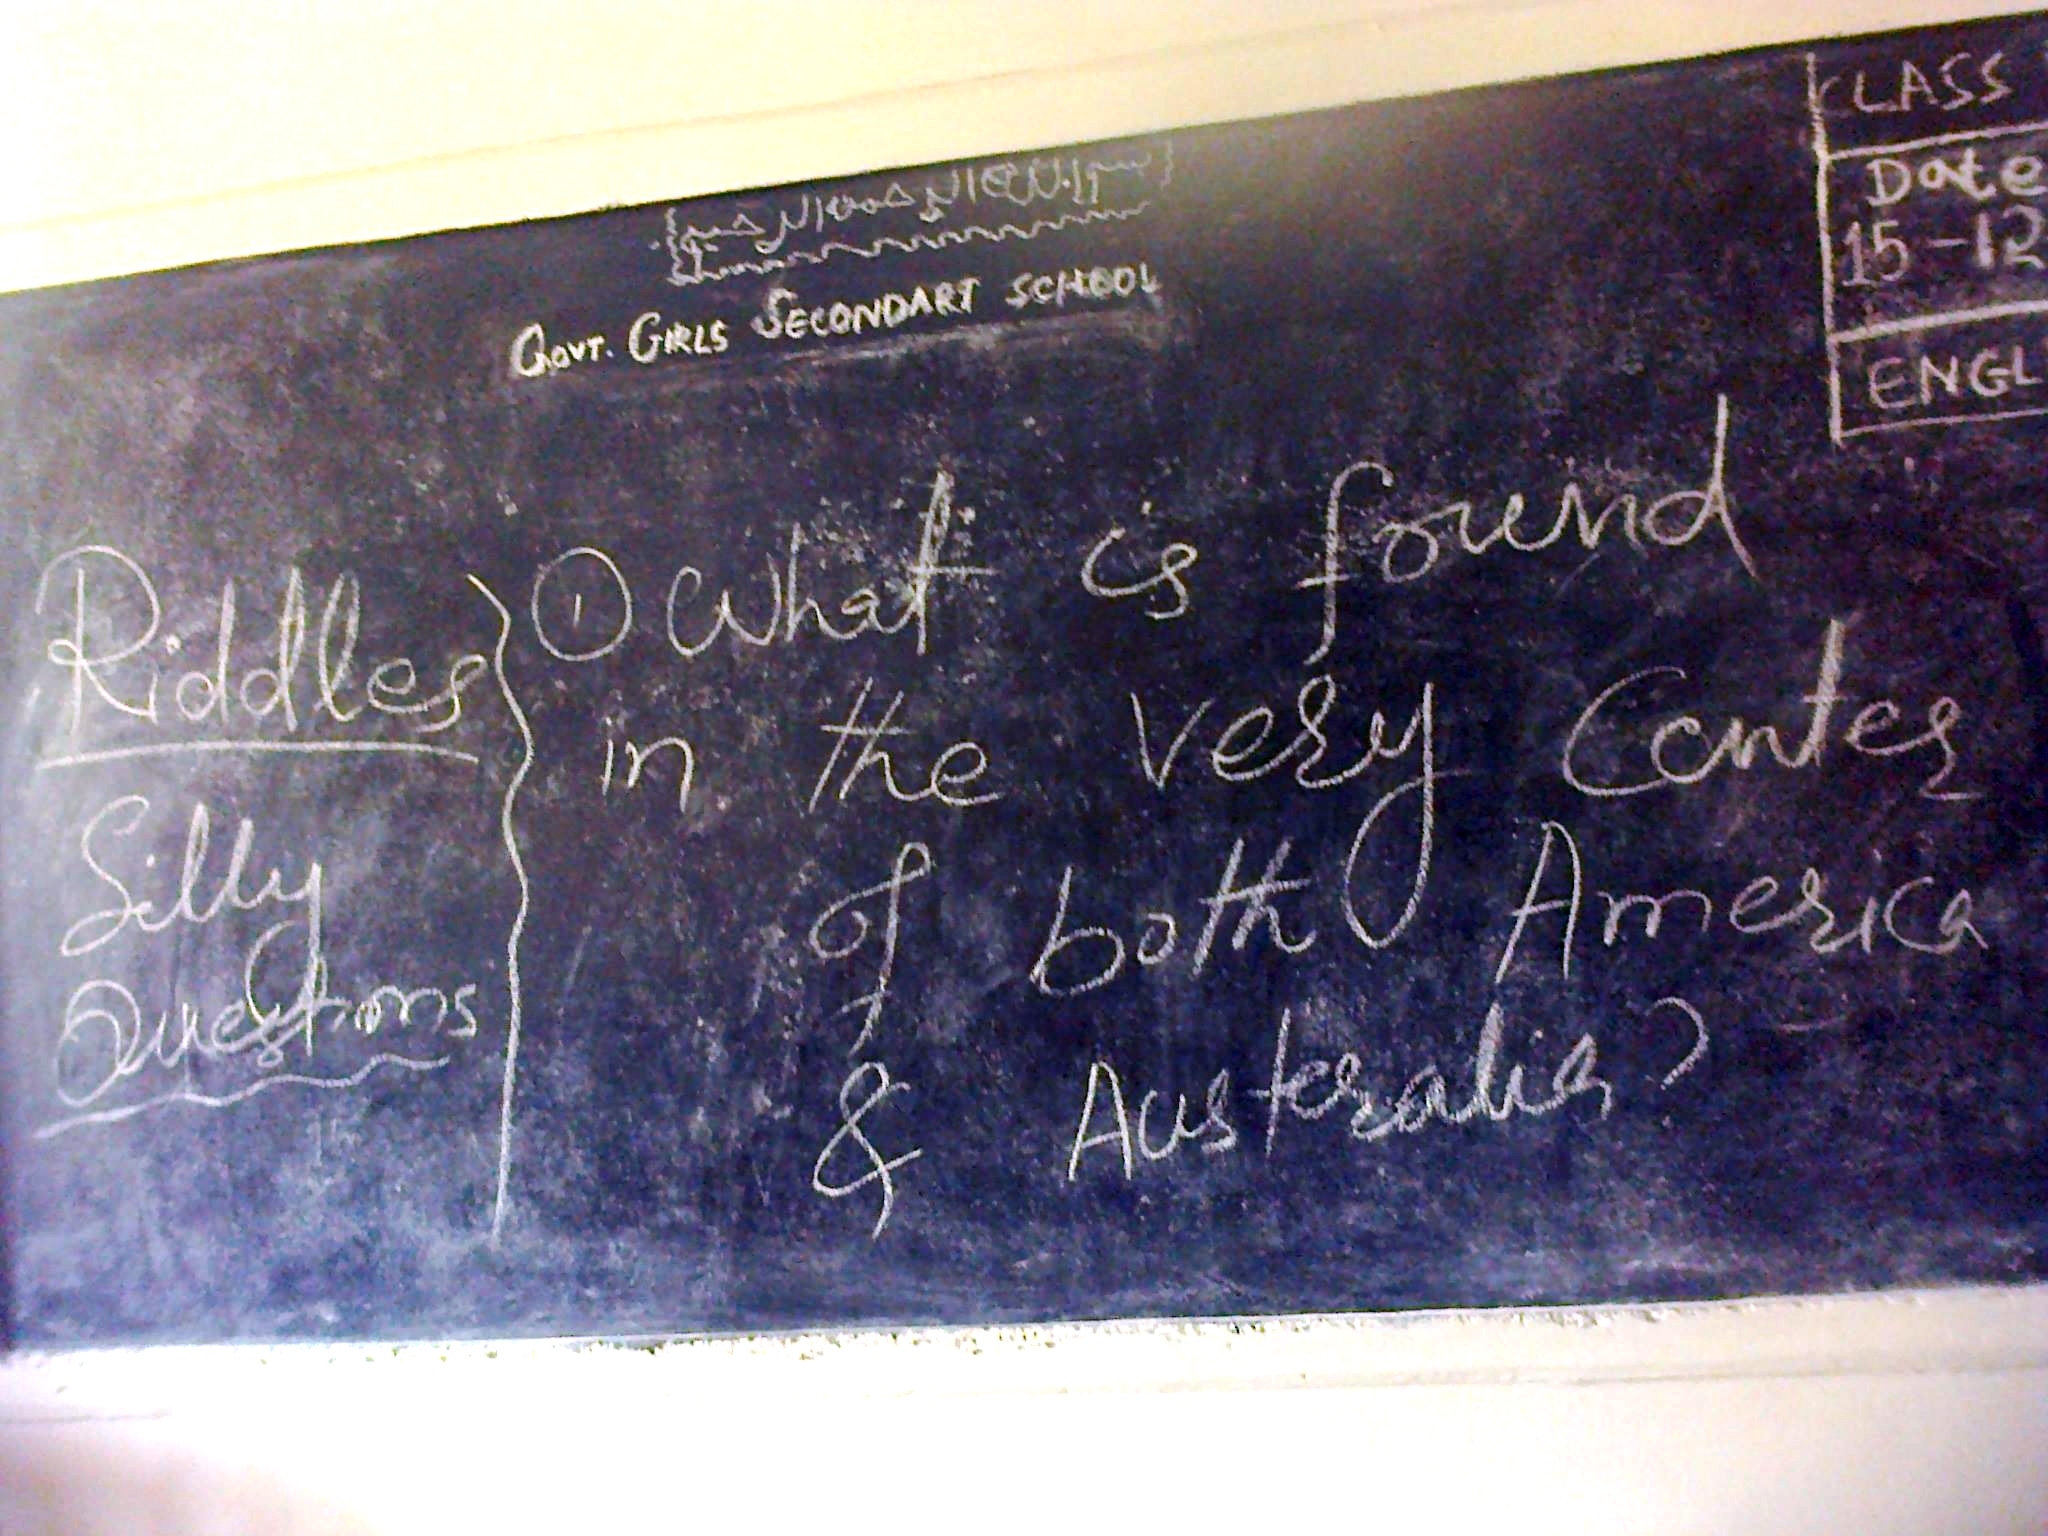 GOVT. GIRLS SECONDART SCHOOL
CLASS
Date
15-12
ENGL
Riddles
Silly
Questions
① What is found
in the very Center
of both America
& Australia?